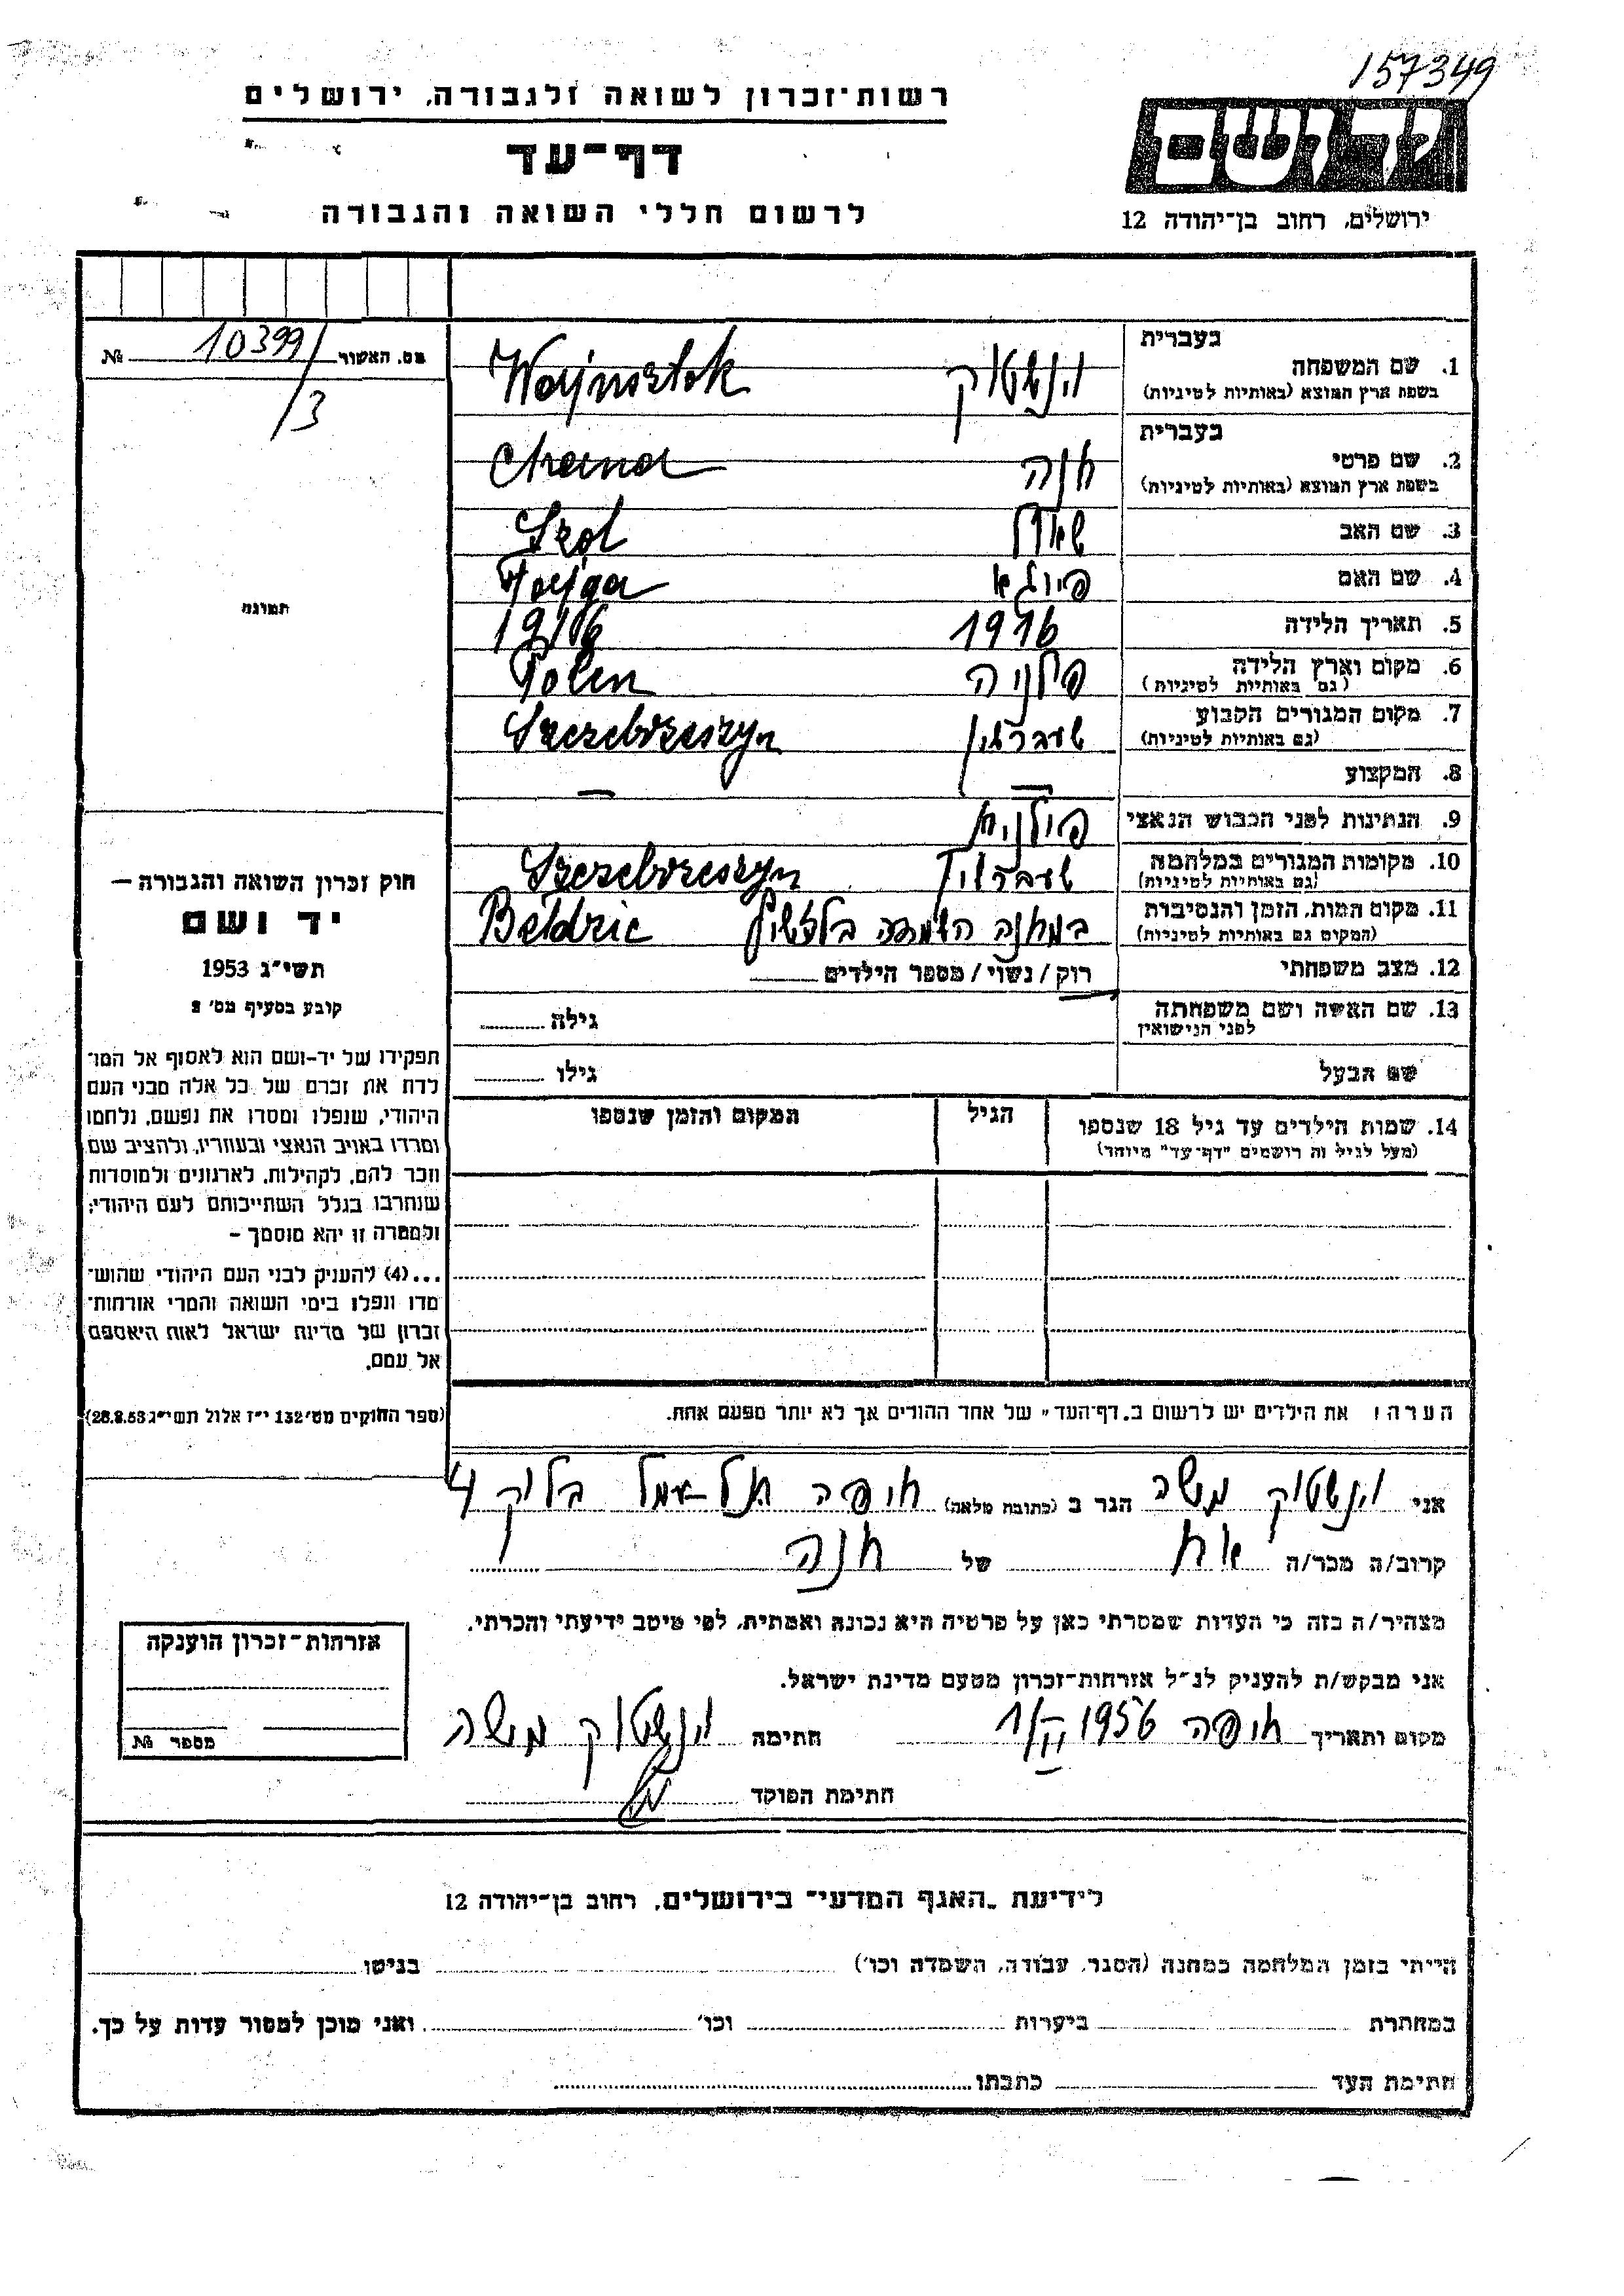 157349
רשות־זכרון לשואה ולגבורה, ירושלים
דף־עד
לרשום חללי השואה והגבורה
יד ושם
ירושלים, רחוב בן־יהודה 12
מס. האשור 10399/3 №
תמונה
בעברית
1. שם המשפחה
(בשפת ארץ המוצא (באותיות לטיניות
וינשטוק Wajnsztok
בעברית
2. שם פרטי
(בשפת ארץ המוצא (באותיות לטיניות
חנה Chana
3. שם האב שאול Szol
4. שם האם פייגא Fajga
5. תאריך הלידה 1916 1916
6. מקום וארץ הלידה
(גם באותיות לטיניות)
פולניה Polen
7. מקום המגורים הקבוע
(גם באותיות לטיניות)
שעברשין Szczebrzeszyn
8. המקצוע — —
9. הנתינות לפני הכבוש הנאצי פולנית
10. מקומות המגורים במלחמה
(גם באותיות לטיניות)
שעברשין Szczebrzeszyn
11. מקום המות, הזמן והנסיבות
(המקום גם באותיות לטיניות)
במחנה השמדה Beldzic
12. מצב משפחתי רוק / נשוי / מספר הילדים
13. שם האשה ושם משפחתה
לפני הנישואין
גילה
שם הבעל גילו
14. שמות הילדים עד גיל 18 שנספו
(מעל לגיל זה רושמים "דף־עד" מיוחד)
הגיל
המקום והזמן שנספו
הערה: את הילדים יש לרשום ב"דף־העד" של אחד ההורים אך לא יותר מפעם אחת.
חוק זכרון השואה והגבורה —
יד ושם
תשי"ג 1953
קובע בסעיף מס' 2
תפקידו של יד–ושם הוא לאסוף אל המו־
לדת את זכרם של כל אלה מבני העם
היהודי, שנפלו ומסרו את נפשם, נלחמו
ומרדו באויב הנאצי ובעוזריו, ולהציב שם
וזכר להם, לקהילות, לארגונים ולמוסדות
שנחרבו בגלל השתייכותם לעם היהודי;
ולמטרה זו יהא מוסמך –
...(4) להעניק לבני העם היהודי שהוש־
מדו ונפלו בימי השואה והמרי אזרחות־
זכרון של מדינת ישראל לאות היאספם
אל עמם.
(ספר החוקים מס' 132 י"ז אלול תשי"ג 28.8.53)
אני וינשטוק משה הגר ב (כתובת מלאה) חיפה תל־עמל בלוק 4
קרוב/ה מכר/ה אח של חנה
מצהיר/ה בזה כי העדות שמסרתי כאן על פרטיה היא נכונה ואמתית, לפי מיטב ידיעתי והכרתי.
אני מבקש/ת להעניק לנ"ל אזרחות־זכרון מטעם מדינת ישראל.
מקום ותאריך חיפה 1956 חתימה וינשטוק משה
חתימת הפוקד
אזרחות־זכרון הוענקה
מספר №
לידיעת "האגף המדעי" בירושלים, רחוב בן־יהודה 12
הייתי בזמן המלחמה במחנה (הסגר, עבודה, השמדה וכו') בגיטו
במחתרת ביערות וכו' ואני מוכן למסור עדות על כך.
חתימת העד כתבתו